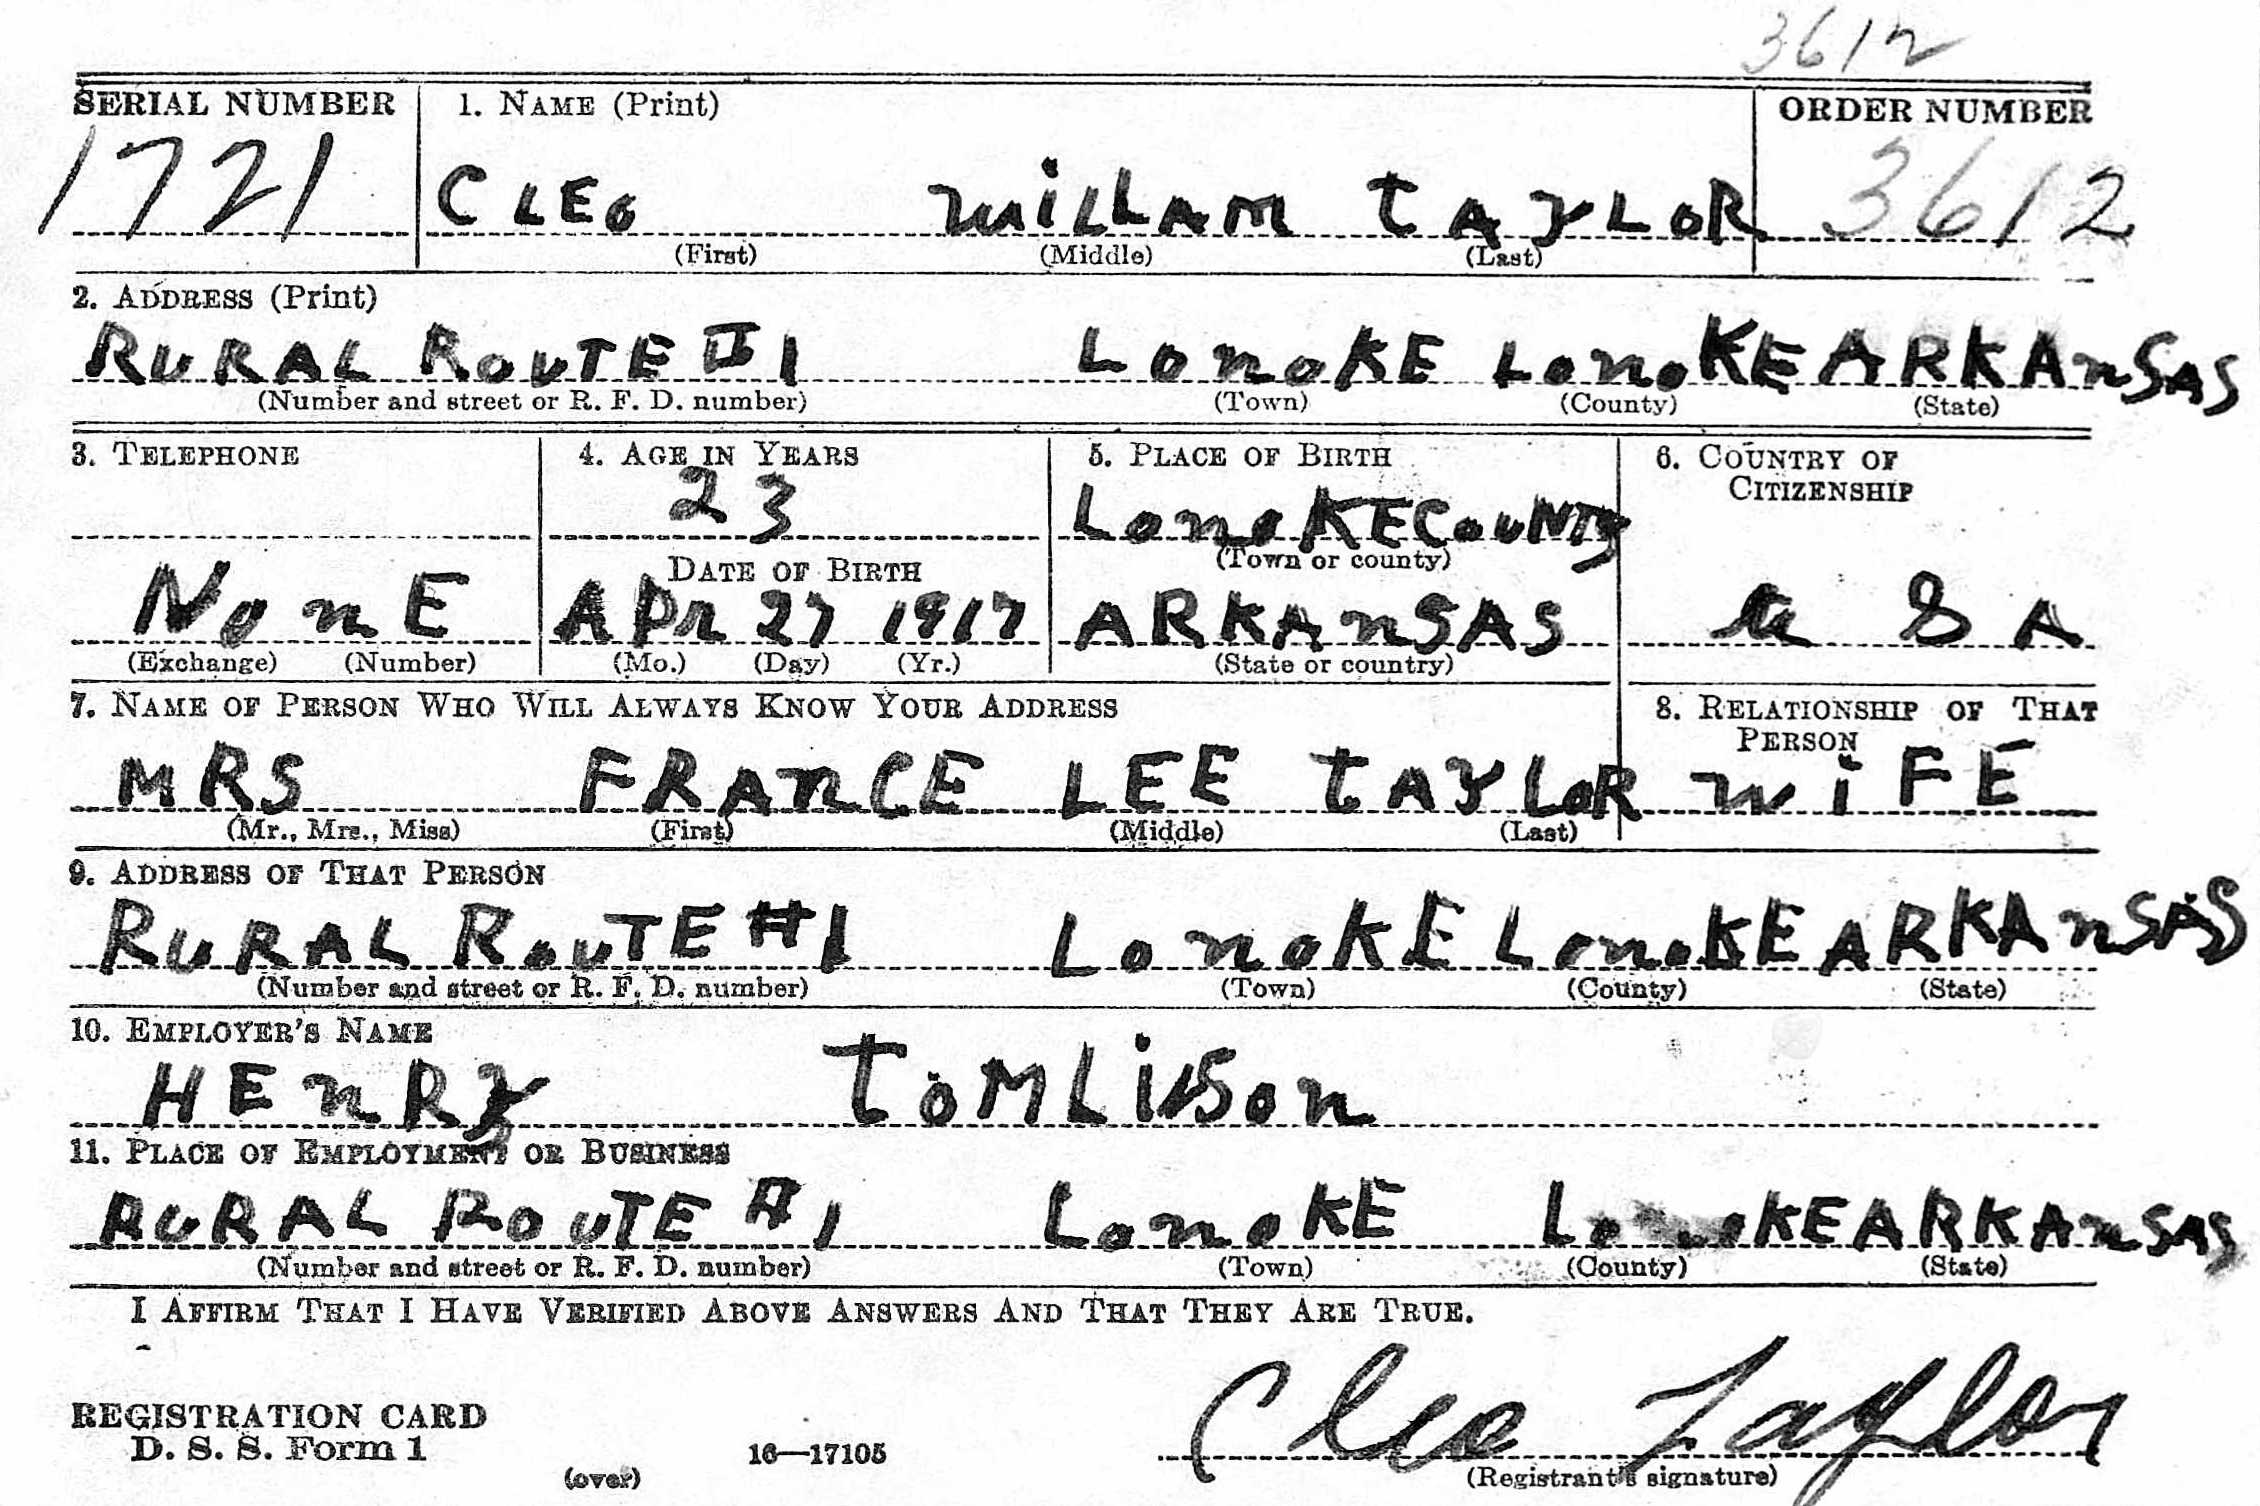 3612
SERIAL NUMBER 1. NAME (Print) ORDER NUMBER
1721 CLEO WILLAM TAYLOR 3612
(First) (Middle) (Last)
2. ADDRESS (Print)
RURAL ROUTE #1 LONOKE LONOKE ARKANSAS
(Number and street or R. F. D. number) (Town) (County) (State)
3. TELEPHONE 4. AGE IN YEARS 5. PLACE OF BIRTH 6. COUNTRY OF CITIZENSHIP
23 LONOKE COUNTY
(Town or county)
DATE OF BIRTH
NONE APR 27 1917 ARKANSAS U S A
(Exchange) (Number) (Mo.) (Day) (Yr.) (State or country)
7. NAME OF PERSON WHO WILL ALWAYS KNOW YOUR ADDRESS 8. RELATIONSHIP OF THAT PERSON
MRS FRANCE LEE TAYLOR WIFE
(Mr., Mrs., Miss) (First) (Middle) (Last)
9. ADDRESS OF THAT PERSON
RURAL ROUTE #1 LONOKE LONOKE ARKANSAS
(Number and street or R. F. D. number) (Town) (County) (State)
10. EMPLOYER'S NAME
HENRY TOMLINSON
11. PLACE OF EMPLOYMENT OR BUSINESS
RURAL ROUTE #1 LONOKE LONOKE ARKANSAS
(Number and street or R. F. D. number) (Town) (County) (State)
I AFFIRM THAT I HAVE VERIFIED ABOVE ANSWERS AND THAT THEY ARE TRUE.
Cleo Taylor
REGISTRATION CARD
D. S. S. Form 1 16—17105
(over) (Registrant's signature)